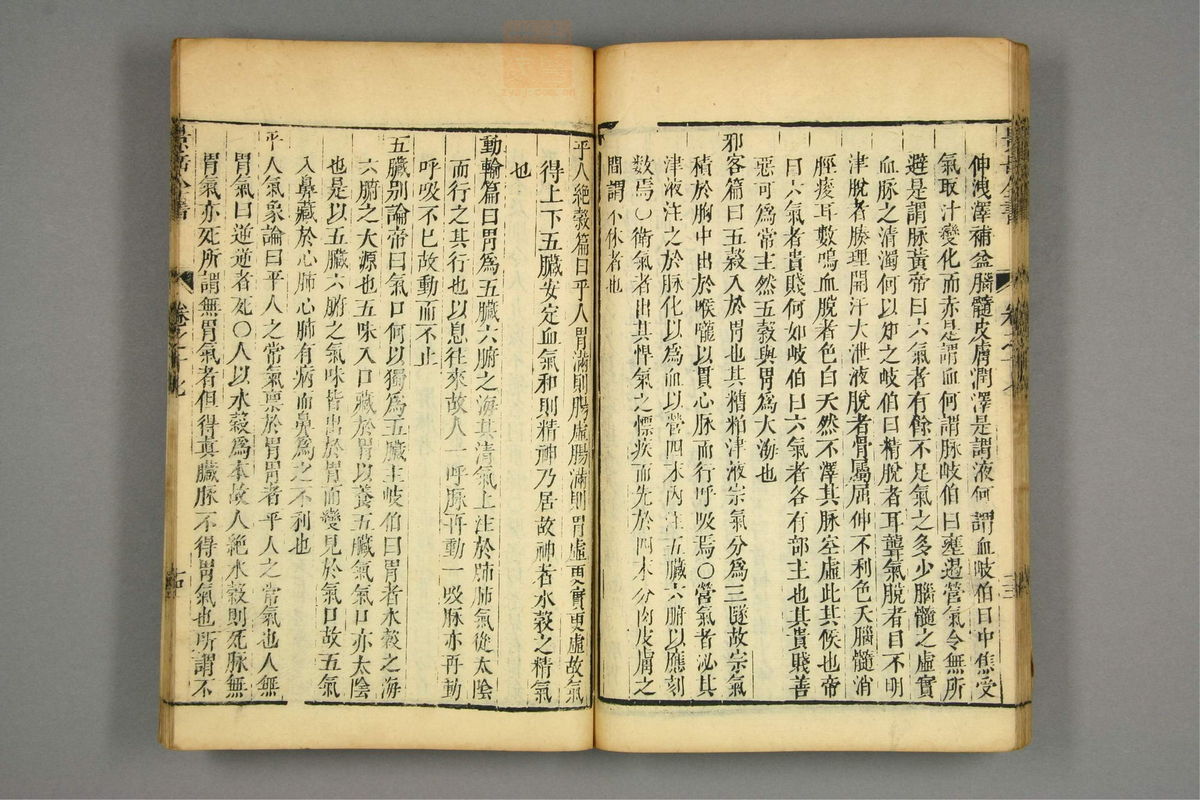 伸洩澤補益腦髓皮膚潤澤是謂液何謂血岐伯曰中焦受
氣取汁變化而赤是謂血何謂脉岐伯曰壅遏營氣令無所
避是謂脉黃帝曰六氣者有餘不足氣之多少腦髓之虛實
血脉之清濁何以知之岐伯曰精脫者耳聾氣脫者目不明
津脫者腠理開汗大泄液脫者骨屬屈伸不利色夭腦髓消
脛痠耳數鳴血脫者色白夭然不澤其脉空虛此其候也帝
曰六氣者貴賤何如岐伯曰六氣者各有部主也其貴賤善
惡可爲常主然五穀與胃爲大海也
邪客篇曰五穀入於胃也其糟粕津液宗氣分爲三隧故宗氣
積於胸中出於喉嚨以貫心脉而行呼吸焉〇營氣者泌其
津液注之於脉化以爲血以營四末內注五臟六腑以應刻
數焉〇衛氣者出其悍氣之慓疾而先於四末分肉皮膚之
間謂不休者也
平人絕穀篇曰平人胃滿則腸虛腸滿則胃虛更實更虛故氣
得上下五臟安定血氣和則精神乃居故神者水穀之精氣
也
動輸篇曰胃爲五臟六腑之海其清氣上注於肺肺氣從太陰
而行之其行也以息往來故人一呼脉再動一吸脉亦再動
呼吸不已故動而不止
五臟别論帝曰氣口何以獨爲五臟主岐伯曰胃者水穀之海
六腑之大源也五味入口藏於胃以養五臟氣氣口亦太陰
也是以五臟六腑之氣味皆出於胃而變見於氣口故五氣
入鼻藏於心肺心肺有病而鼻爲之不利也
平人氣象論曰平人之常氣禀於胃胃者平人之常氣也人無
胃氣曰逆逆者死〇人以水穀爲本故人絕水穀則死脉無
胃氣亦死所謂無胃氣者但得眞臟脉不得胃氣也所謂不
景岳全書
卷之十九